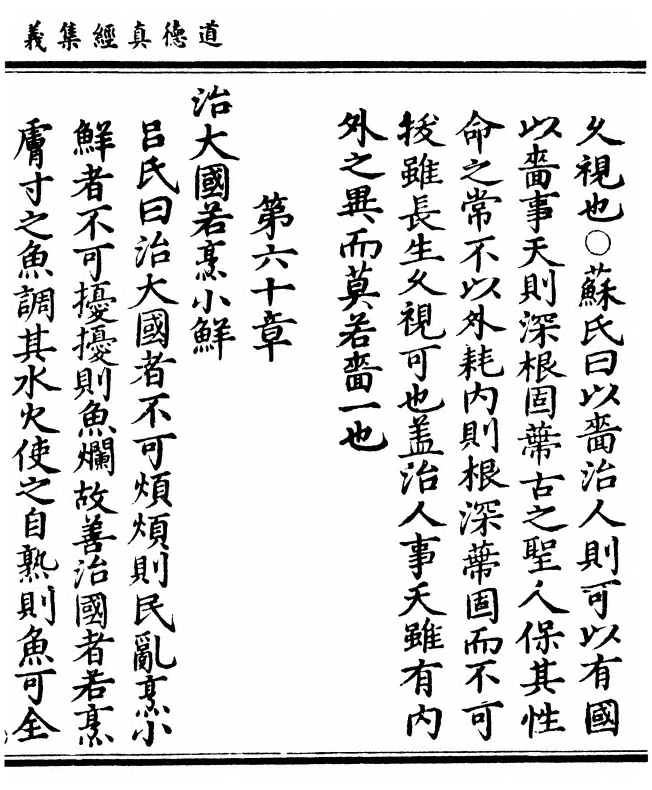 道德真經集義
久視也○蘇氏曰以嗇治人則可以有國
以嗇事天則深根固蔕古之聖人保其性
命之常不以外耗内則根深蔕固而不可
拔雖長生久視可也盖治人事天雖有内
外之異而莫若嗇一也
第六十章
治大國若烹小鮮
吕氏曰治大國者不可煩煩則民亂烹小
鮮者不可擾擾則魚爛故善治國者若烹
膚寸之魚調其水火使之自熟則魚可全